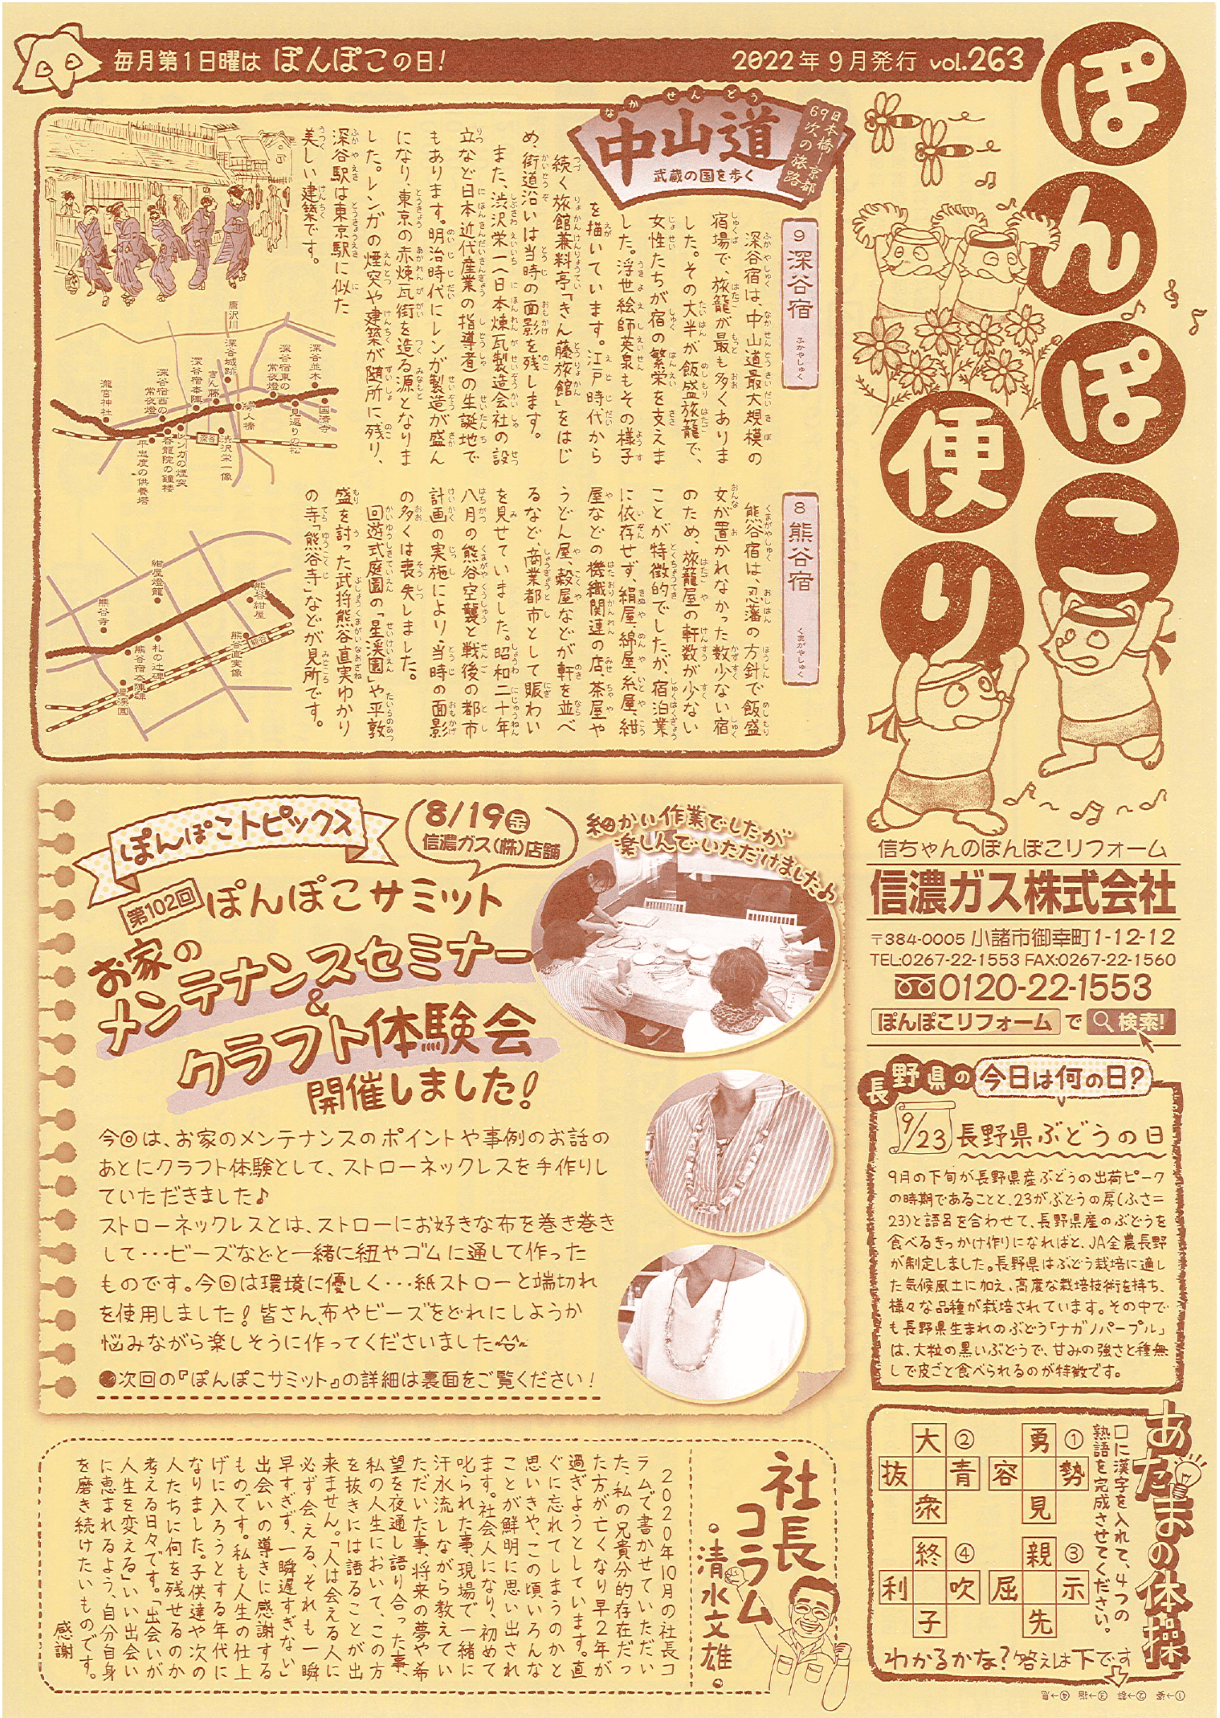 毎月第1日曜は ぽんぽこの日!
2022年9月発行 vol.263
ぽんぽこ
便り
なかせんどう
中山道
武蔵の国を歩く
日本橋―京都
69次の旅路
9 深谷宿 ふかやしゅく
深谷宿は、中山道最大規模の
宿場で、旅籠が最も多くありま
した。その大半が飯盛旅籠で、
女性たちが宿の繁栄を支えま
した。浮世絵師英泉もその様子
を描いています。江戸時代から
続く旅館兼料亭「きん藤旅館」をはじ
め、街道沿いは当時の面影を残します。
また、渋沢栄一(日本煉瓦製造会社の設
立など日本近代産業の指導者)の生誕地で
もあります。明治時代にレンガ製造が盛ん
になり、東京の赤煉瓦街を造る源となりま
した。レンガの煙突や建築が随所に残り、
深谷駅は東京駅に似た
美しい建築です。
唐沢川
深谷城跡
深谷並木
深谷宿東の
常夜燈
きん藤
深谷宿本陣
深谷宿西の
常夜燈
瀧宮神社
国済寺
見返りの松
行人橋
渋沢栄一像
深谷
レンガの煙突
呑龍院の鐘楼
平忠度の供養塔
8 熊谷宿 くまがやしゅく
熊谷宿は、忍藩の方針で飯盛
女が置かれなかった数少ない宿
のため、旅籠屋の軒数が少ない
ことが特徴的でしたが、宿泊業
に依存せず、絹屋、綿屋、糸屋、紺
屋などの機織関連の店、茶屋や
うどん屋、穀屋などが軒を並べ
るなど、商業都市として賑わい
を見せていました。昭和二十年
八月の熊谷空襲と戦後の都市
計画の実施により、当時の面影
の多くは喪失しました。
回遊式庭園の「星溪園」や平敦
盛を討った武将熊谷直実ゆかり
の寺「熊谷寺」などが見所です。
紺屋燈籠
熊谷紺屋
熊谷寺
札の辻碑
熊谷宿本陣碑
熊谷直実像
熊谷
星溪園
信ちゃんのぽんぽこリフォーム
信濃ガス株式会社
〒384-0005 小諸市御幸町1-12-12
TEL:0267-22-1553 FAX:0267-22-1560
0120-22-1553
ぽんぽこリフォーム で 検索!
ぽんぽこトピックス
8/19(金)
信濃ガス(株)店舗
細かい作業でしたが
楽しんでいただけました♪
第102回 ぽんぽこサミット
お家の
メンテナンスセミナー
&
クラフト体験会
開催しました!
今回は、お家のメンテナンスのポイントや事例のお話の
あとにクラフト体験として、ストローネックレスを手作りし
ていただきました♪
ストローネックレスとは、ストローにお好きな布を巻き巻き
して・・・ビーズなどと一緒に紐やゴムに通して作った
ものです。今回は環境に優しく・・・紙ストローと端切れ
を使用しました!皆さん、布やビーズをどれにしようか
悩みながら楽しそうに作ってくださいました^^
●次回の『ぽんぽこサミット』の詳細は裏面をご覧ください!
長野県の 今日は何の日?
9/23 長野県ぶどうの日
9月の下旬が長野県産ぶどうの出荷ピーク
の時期であることと、23がぶどうの房(ふさ=
23)と語呂を合わせて、長野県産のぶどうを
食べるきっかけ作りになればと、JA全農長野
が制定しました。長野県はぶどう栽培に適し
た気候風土に加え、高度な栽培技術を持ち、
様々な品種が栽培されています。その中で
も長野県生まれのぶどう「ナガノパープル」
は、大粒の黒いぶどうで、甘みの強さと種無
しで皮ごと食べられるのが特徴です。
社長
コラム
・清水文雄・
2020年10月の社長コ
ラムで書かせていただい
た、私の兄貴分的存在だっ
た方が亡くなり早2年が
過ぎようとしています。直
ぐに忘れてしまうのかと
思いきや、この頃いろんな
ことが鮮明に思い出され
ます。社会人になり、初めて
叱られた事、現場で一緒に
汗水流しながら教えてい
ただいた事、将来の夢や希
望を夜通し語り合った事、
私の人生において、この方
を抜きには語ることが出
来ません。「人は会える人に
必ず会える、それも一瞬
早すぎず、一瞬遅すぎない」
出会いの導きに感謝する
ものです。私も人生の仕上
げに入ろうとする年代に
なりました。子供達や次の
人たちに何を残せるのか
考える日々です。「出会いが
人生を変える」いい出会い
に恵まれるよう、自分自身
を磨き続けたいものです。
感謝
あたまの体操
□に漢字を入れて、4つの
熟語を完成させてください。
① 勇 勢 見 容
② 大 青 衆 抜
③ 親 示 先 屈
④ 終 吹 子 利
わかるかな?答えは下です
①→姿 ②→群 ③→指 ④→息